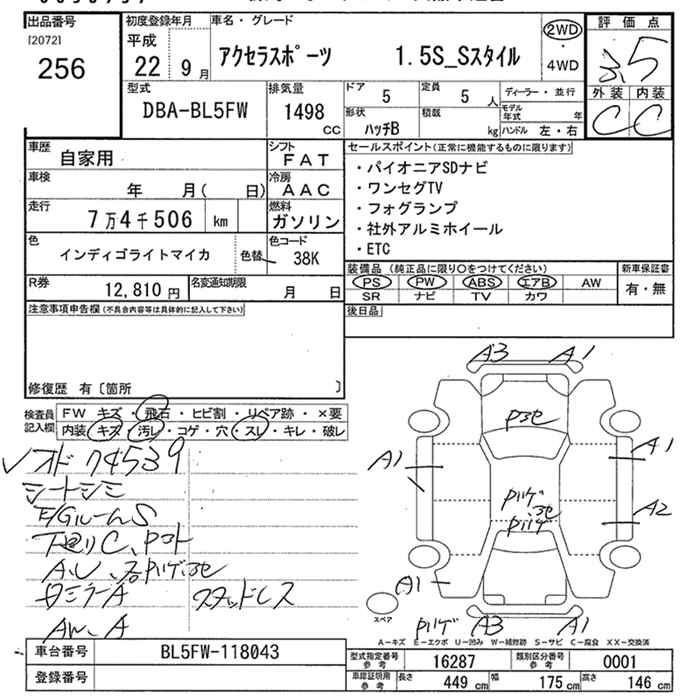 出品番号
[2072]
256
初度登録年月
平成
22年9月
車名・グレード
アクセラスポーツ 1.5S_Sスタイル
2WD
・
4WD
評価点
3.5
外装 内装
C C
型式
DBA-BL5FW
排気量
1498
CC
ドア
5
定員
5人
形状
ハッチB
積載
kg
ディーラー・並行
モデル年式 年
ハンドル 左・右
車歴
自家用
シフト
FAT
車検
年 月( 日)
冷房
AAC
走行
7万4千506 km
燃料
ガソリン
色
インディゴライトマイカ
色替
色コード
38K
R券
12,810円
名変通知期限
月 日
セールスポイント(正常に機能するものに限ります)
・パイオニアSDナビ
・ワンセグTV
・フォグランプ
・社外アルミホイール
・ETC
装備品(純正品に限り○をつけてください)
PS PW ABS エアB AW
SR ナビ TV カワ
新車保証書
有・無
後日品
注意事項申告欄(不具合内容等は具体的に記入して下さい)
修復歴 有〔箇所 〕
検査員記入欄
FW キズ・飛石・ヒビ割・リペア跡・×要
内装 キズ・汚レ・コゲ・穴・スレ・キレ・破レ
オド 74539
シートシミ
E/GルームS
下回りC、
スタッドレス
AW、A
A3 A1
A1
A1
A2
A1
A3 A1
スペア
A-キズ E-エクボ U-凹み W-補修跡 S-サビ C-腐食 XX-交換済
車台番号
BL5FW-118043
登録番号
型式指定番号参考
16287
類別区分番号参考
0001
車庫証明用参考
長さ 449cm 幅 175cm 高さ 146cm